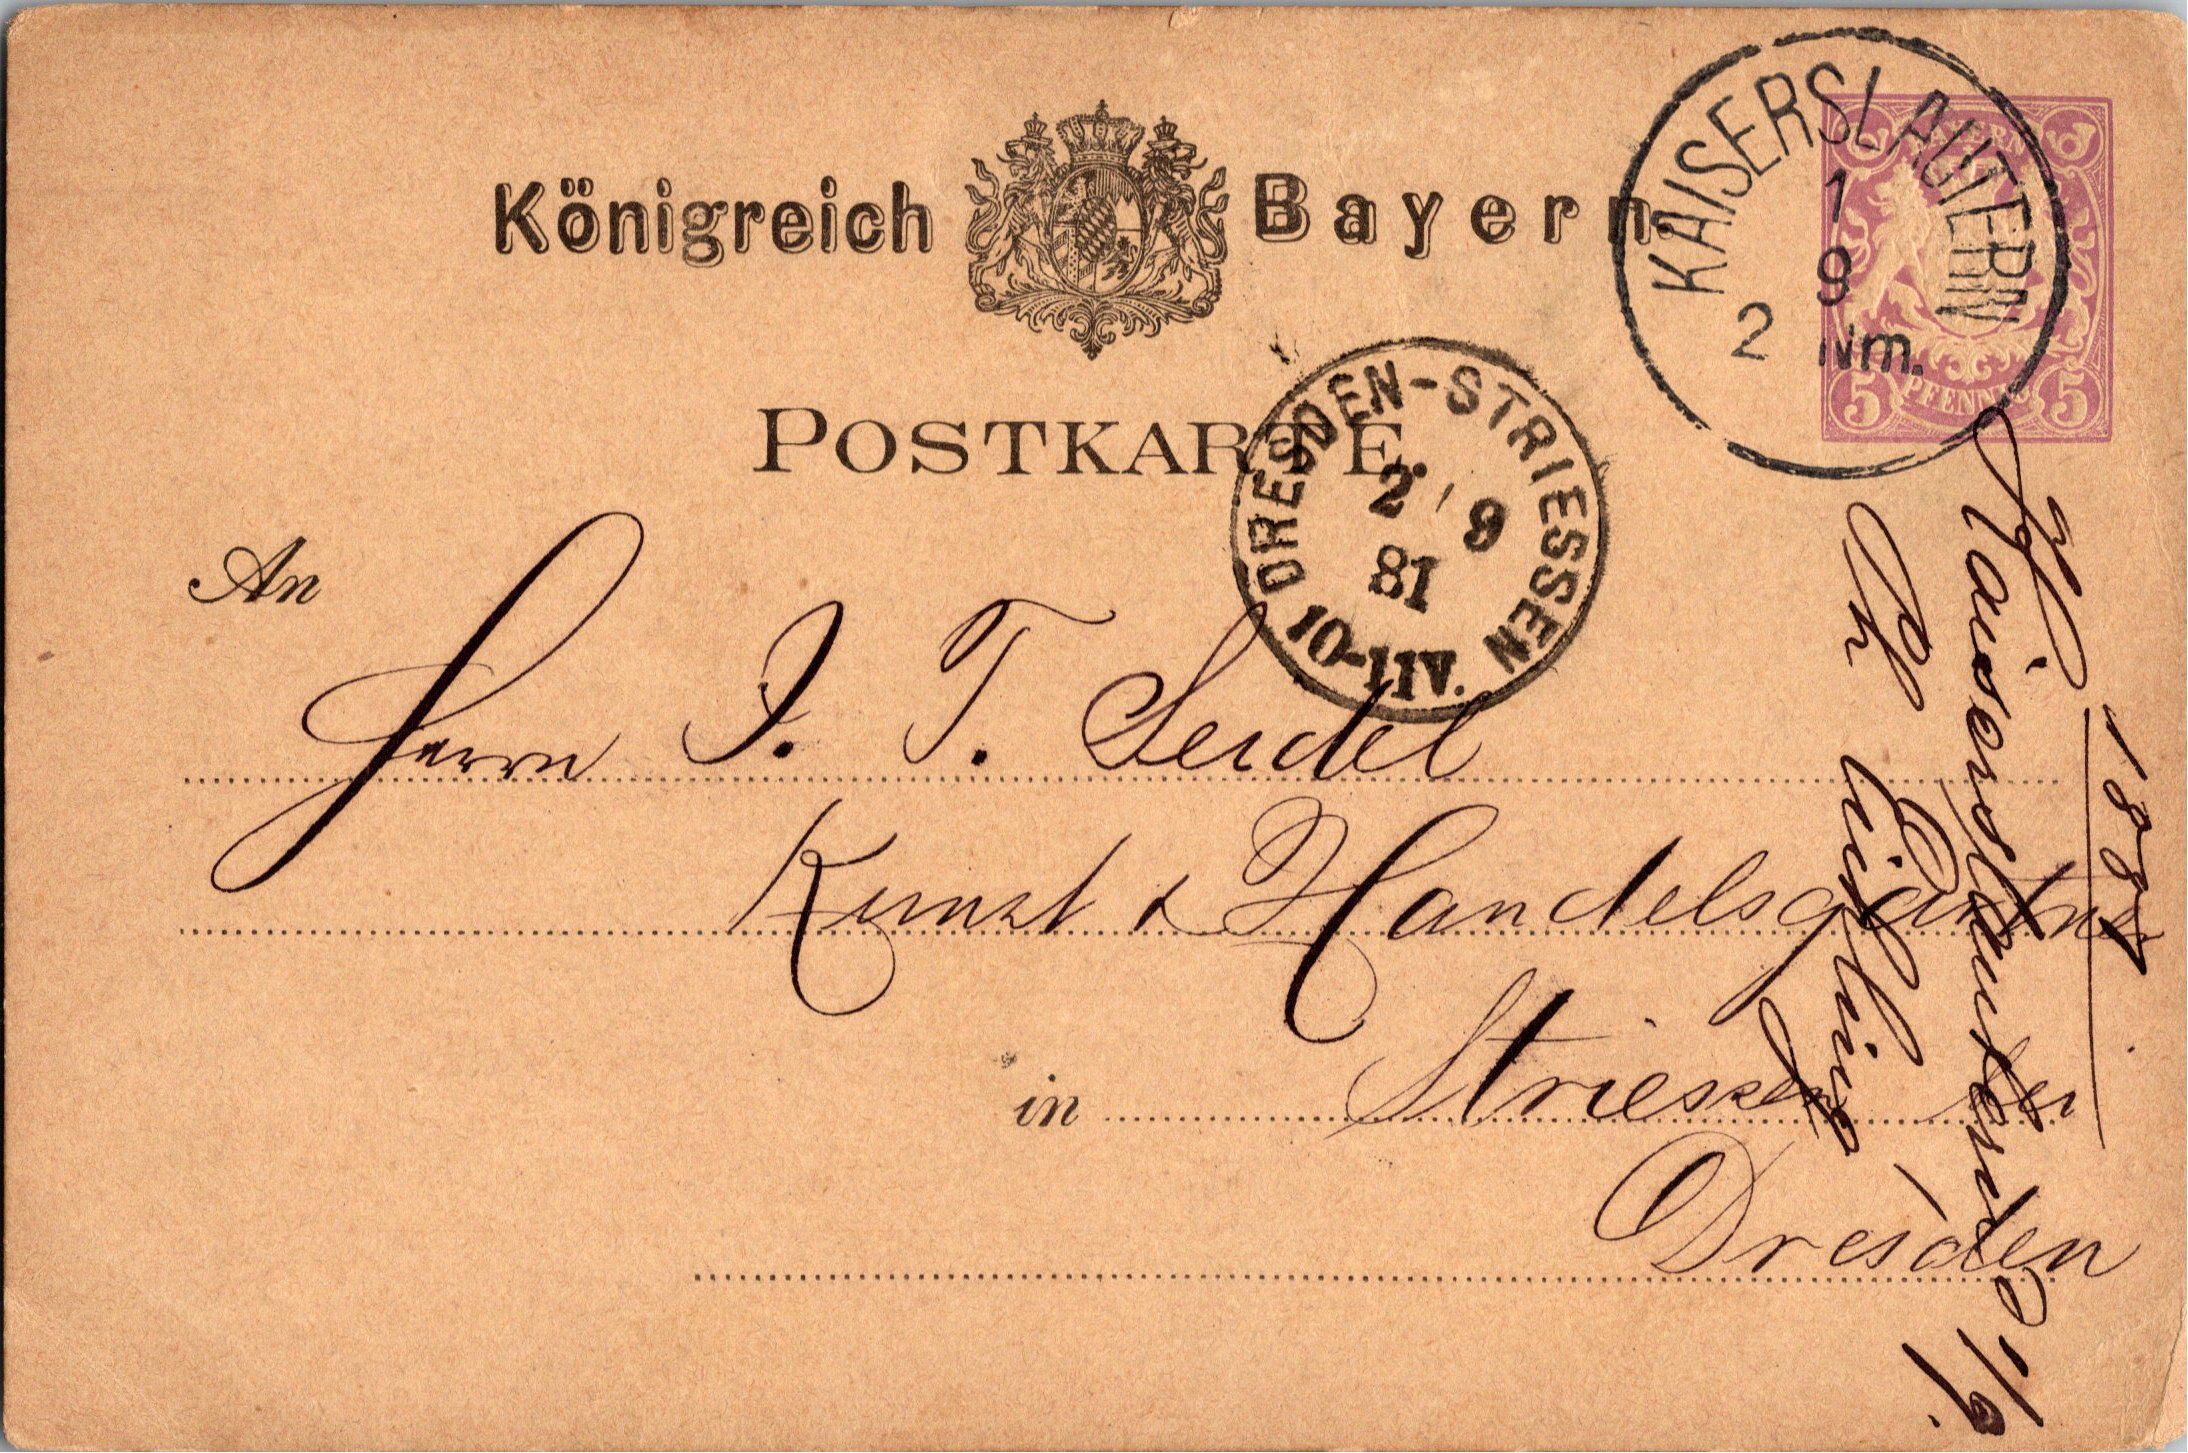 Königreich Bayern.
BAYERN
5 PFENNIG 5
KAISERSLAUTERN
1
9
2 Nm.
POSTKARTE.
DRESDEN-STRIESSEN
2 9
81
10-11V.
An
Herrn J. T. Seidel
Kunst & Handelsgärtner
in Striessen bei
Dresden
1881
Kaiserslautern 1/9.
Ph